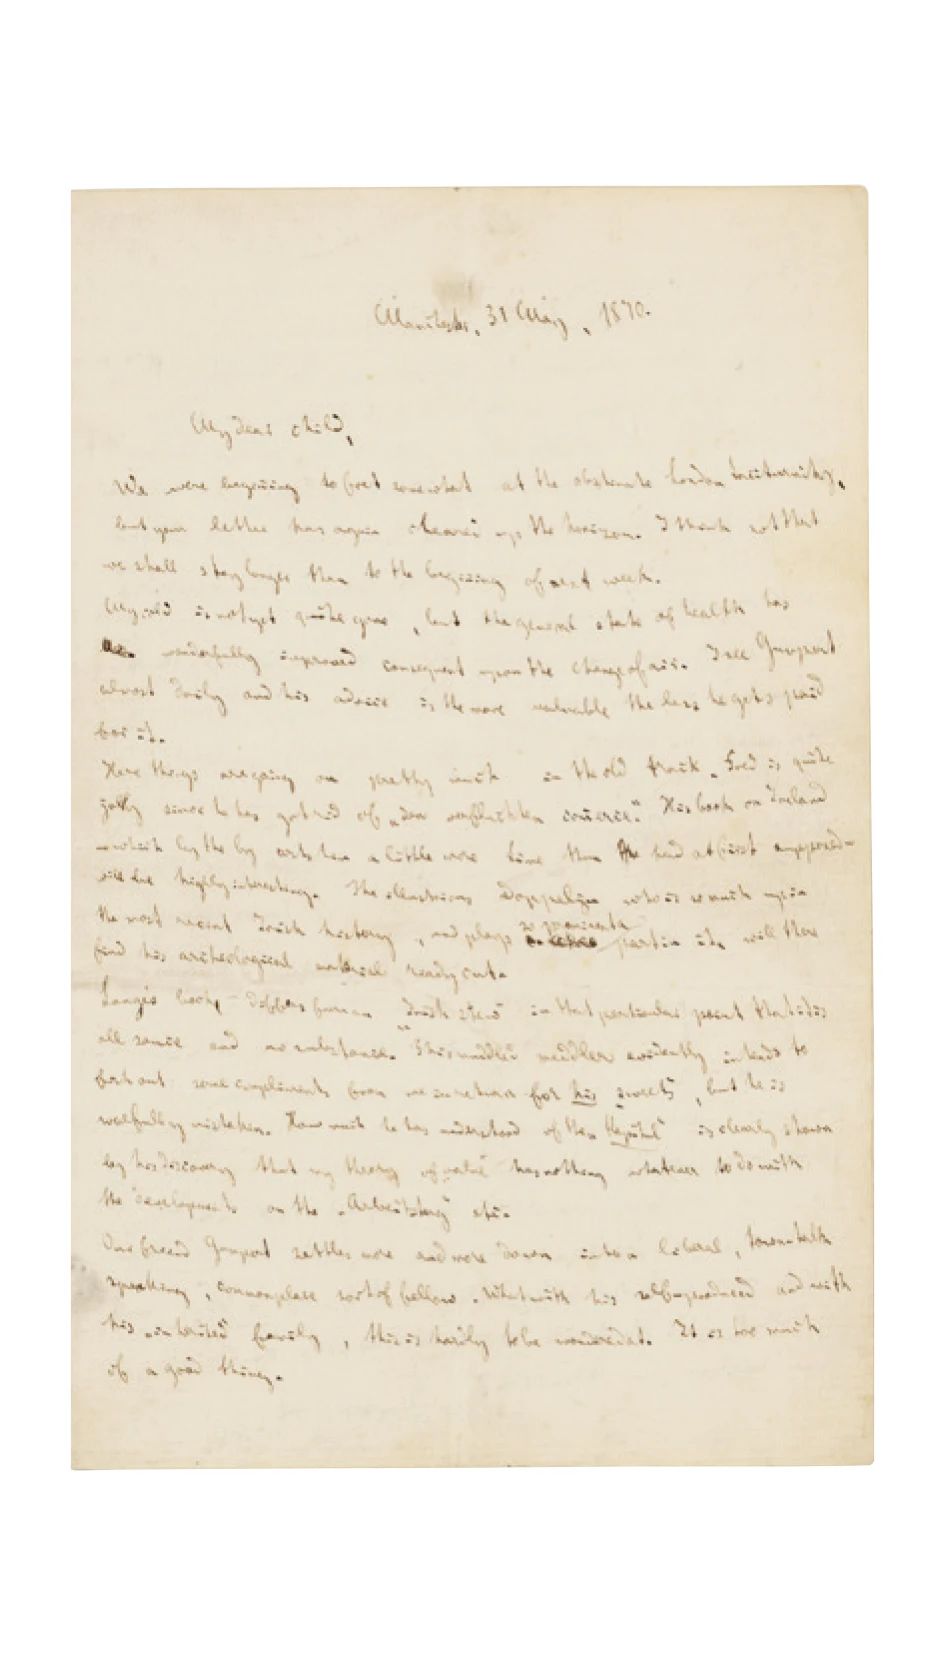 Manchester, 31 May, 1870.
My dear child,
We were beginning to fret somewhat at the obstinate London taciturnity,
but your letter has again cleared up the horizon. I think not that
we shall stay longer than to the beginning of next week.
My cold is not yet quite gone, but the general state of health has
wonderfully improved consequent upon the change of air. I see Gumpert
almost daily and his advice is the more valuable the less he gets paid
for it.
Here things are going on pretty much in the old track. Fred is quite
jolly since he has got rid of „den verfluchten commerce“. His book on Ireland
—which by the by costs him a little more time than he had at first supposed—
will be highly interesting. The illustrious Doppelju who is so much up in
the most recent Irish history, and plays so prominent a part in it, will there
find his archeological material ready cut.
Lange's book differs from an "Irish stew" in that particular point that it is
all sauce and no substance. This muddled meddler evidently intends to
fish out some compliments from me in return for his „sweets“, but he is
woefully mistaken. How much he has understood of the „Kapital“ is clearly shown
by his discovery that my theory of „value“ has nothing whatever to do with
the developments on the „Arbeitstag“ etc.
Our friend Gumpert settles more and more down into a liberal, town talk
speaking, commonplace sort of fellow. What with his selfproduced and with
his „inherited“ family, this is hardly to be wondered at. It is too much
of a good thing.